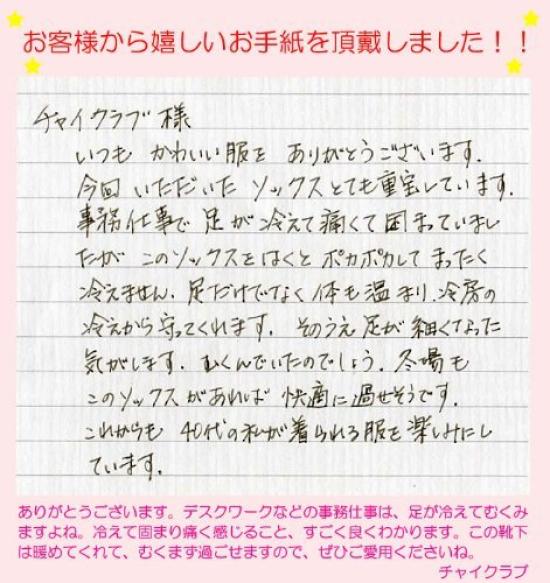 お客様から嬉しいお手紙を頂戴しました！！
チャイクラブ様
いつも かわいい服を ありがとうございます.
今回 いただいた ソックスとても重宝しています.
事務仕事で 足が 冷えて痛くて 困まっていまし
たが このソックスをはくと ポカポカして まったく
冷えません. 足だけでなく 体も 温まり. 冷房の
冷えから 守ってくれます. そのうえ 足が 細くなった
気がします. むくんでいたのでしょう. 冬場も
このソックスがあれば 快適に過せそうです.
これからも 40代の私が着られる服を 楽しみにし
ています.
ありがとうございます。デスクワークなどの事務仕事は、足が冷えてむくみ
ますよね。冷えて固まり痛く感じること、すごく良くわかります。この靴下
は暖めてくれて、むくまず過ごせますので、ぜひご愛用くださいね。
チャイクラブ